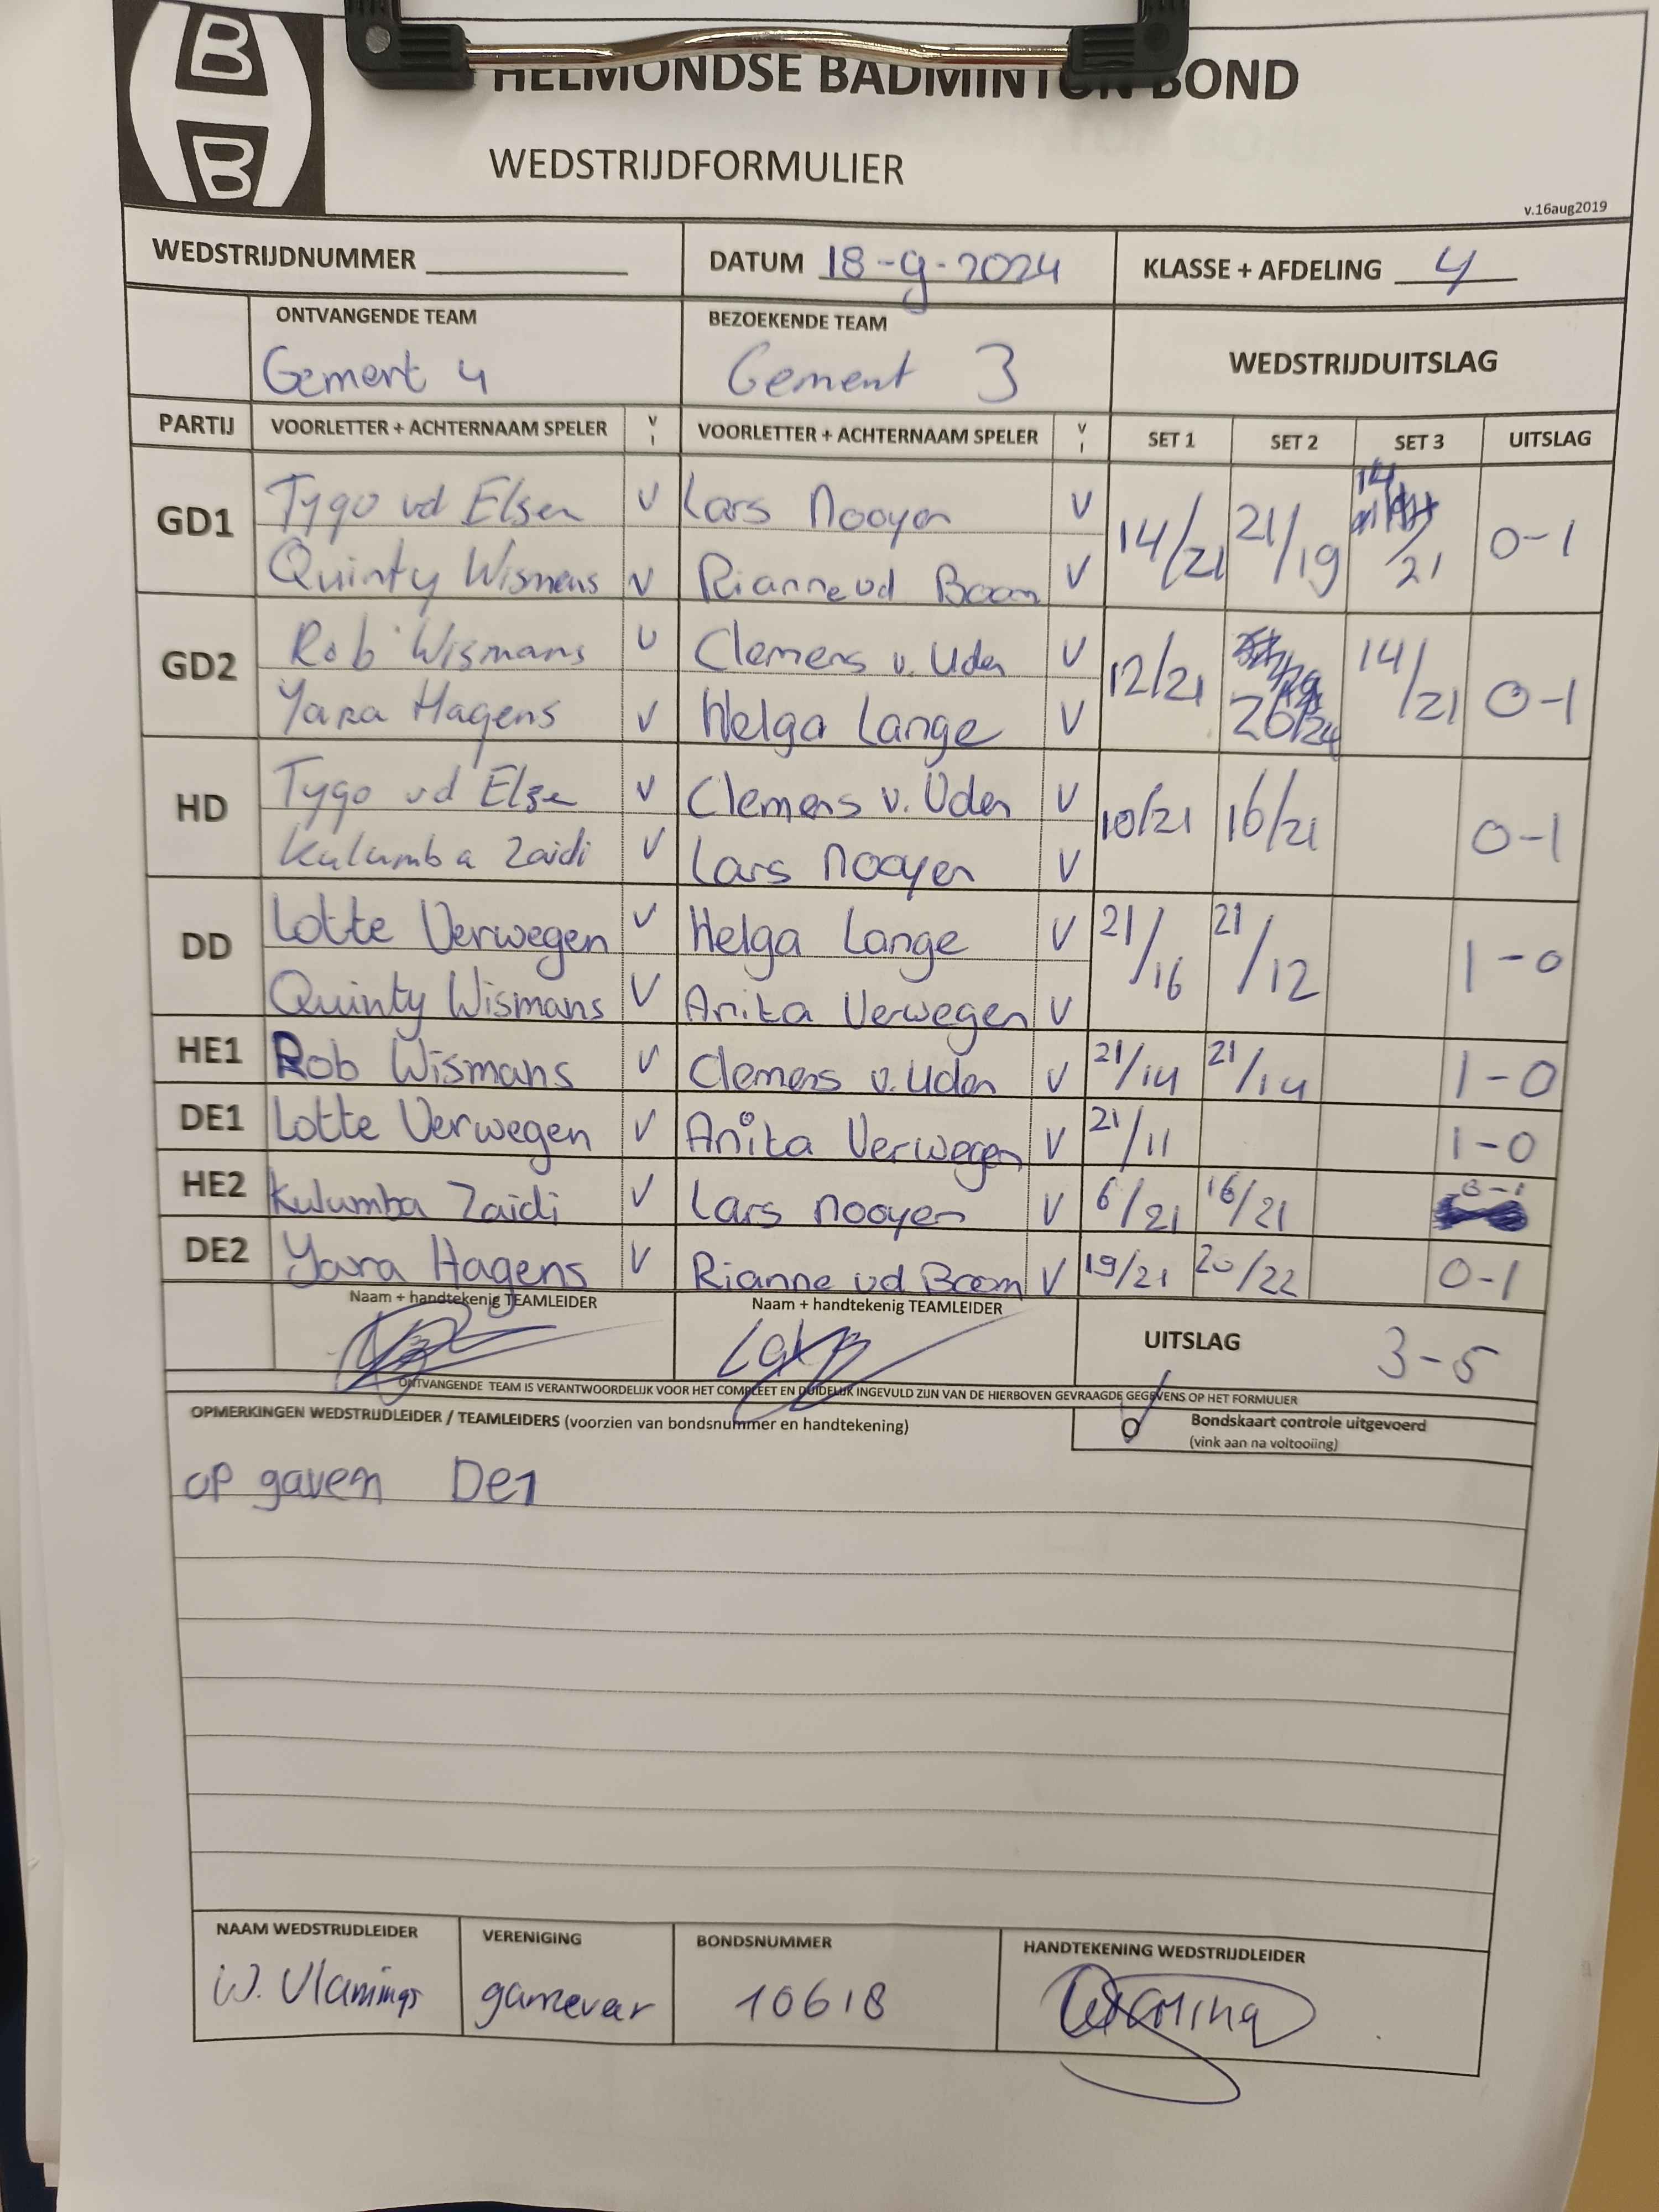 B
B
HELMONDSE BADMINTON BOND
WEDSTRIJDFORMULIER
v.16aug2019
WEDSTRIJDNUMMER DATUM 18-9-2024 KLASSE + AFDELING 4
ONTVANGENDE TEAM BEZOEKENDE TEAM
Gemert 4 Gement 3 WEDSTRIJDUITSLAG
PARTIJ VOORLETTER + ACHTERNAAM SPELER V I VOORLETTER + ACHTERNAAM SPELER V I SET 1 SET 2 SET 3 UITSLAG
GD1 Tygo vd Elsen V Lars Nooyen V 14/21 21/19 14/21 0-1
Quinty Wismans V Rianne vd Boom V
GD2 Rob Wismans V Clemens v. Uden V 12/21 26/24 14/21 0-1
Yara Hagens V Helga Lange V
HD Tygo vd Else V Clemens v. Uden V 10/21 16/21 0-1
Kulumba Zaidi V Lars Nooyen V
DD Lotte Verwegen V Helga Lange V 21/16 21/12 1-0
Quinty Wismans V Anita Verwegen V
HE1 Rob Wismans V Clemens v. Uden V 21/14 21/14 1-0
DE1 Lotte Verwegen V Anita Verwegen V 21/11 1-0
HE2 Kulumba Zaidi V Lars Nooyen V 6/21 16/21 0-1
DE2 Yara Hagens V Rianne vd Boom V 19/21 20/22 0-1
Naam + handtekenig TEAMLEIDER Naam + handtekenig TEAMLEIDER
UITSLAG 3-5
ONTVANGENDE TEAM IS VERANTWOORDELIJK VOOR HET COMPLEET EN DUIDELIJK INGEVULD ZIJN VAN DE HIERBOVEN GEVRAAGDE GEGEVENS OP HET FORMULIER
OPMERKINGEN WEDSTRIJDLEIDER / TEAMLEIDERS (voorzien van bondsnummer en handtekening) Bondskaart controle uitgevoerd
(vink aan na voltooiing)
op gaven De1
NAAM WEDSTRIJDLEIDER VERENIGING BONDSNUMMER HANDTEKENING WEDSTRIJDLEIDER
W. Vlamings gamevar 10618